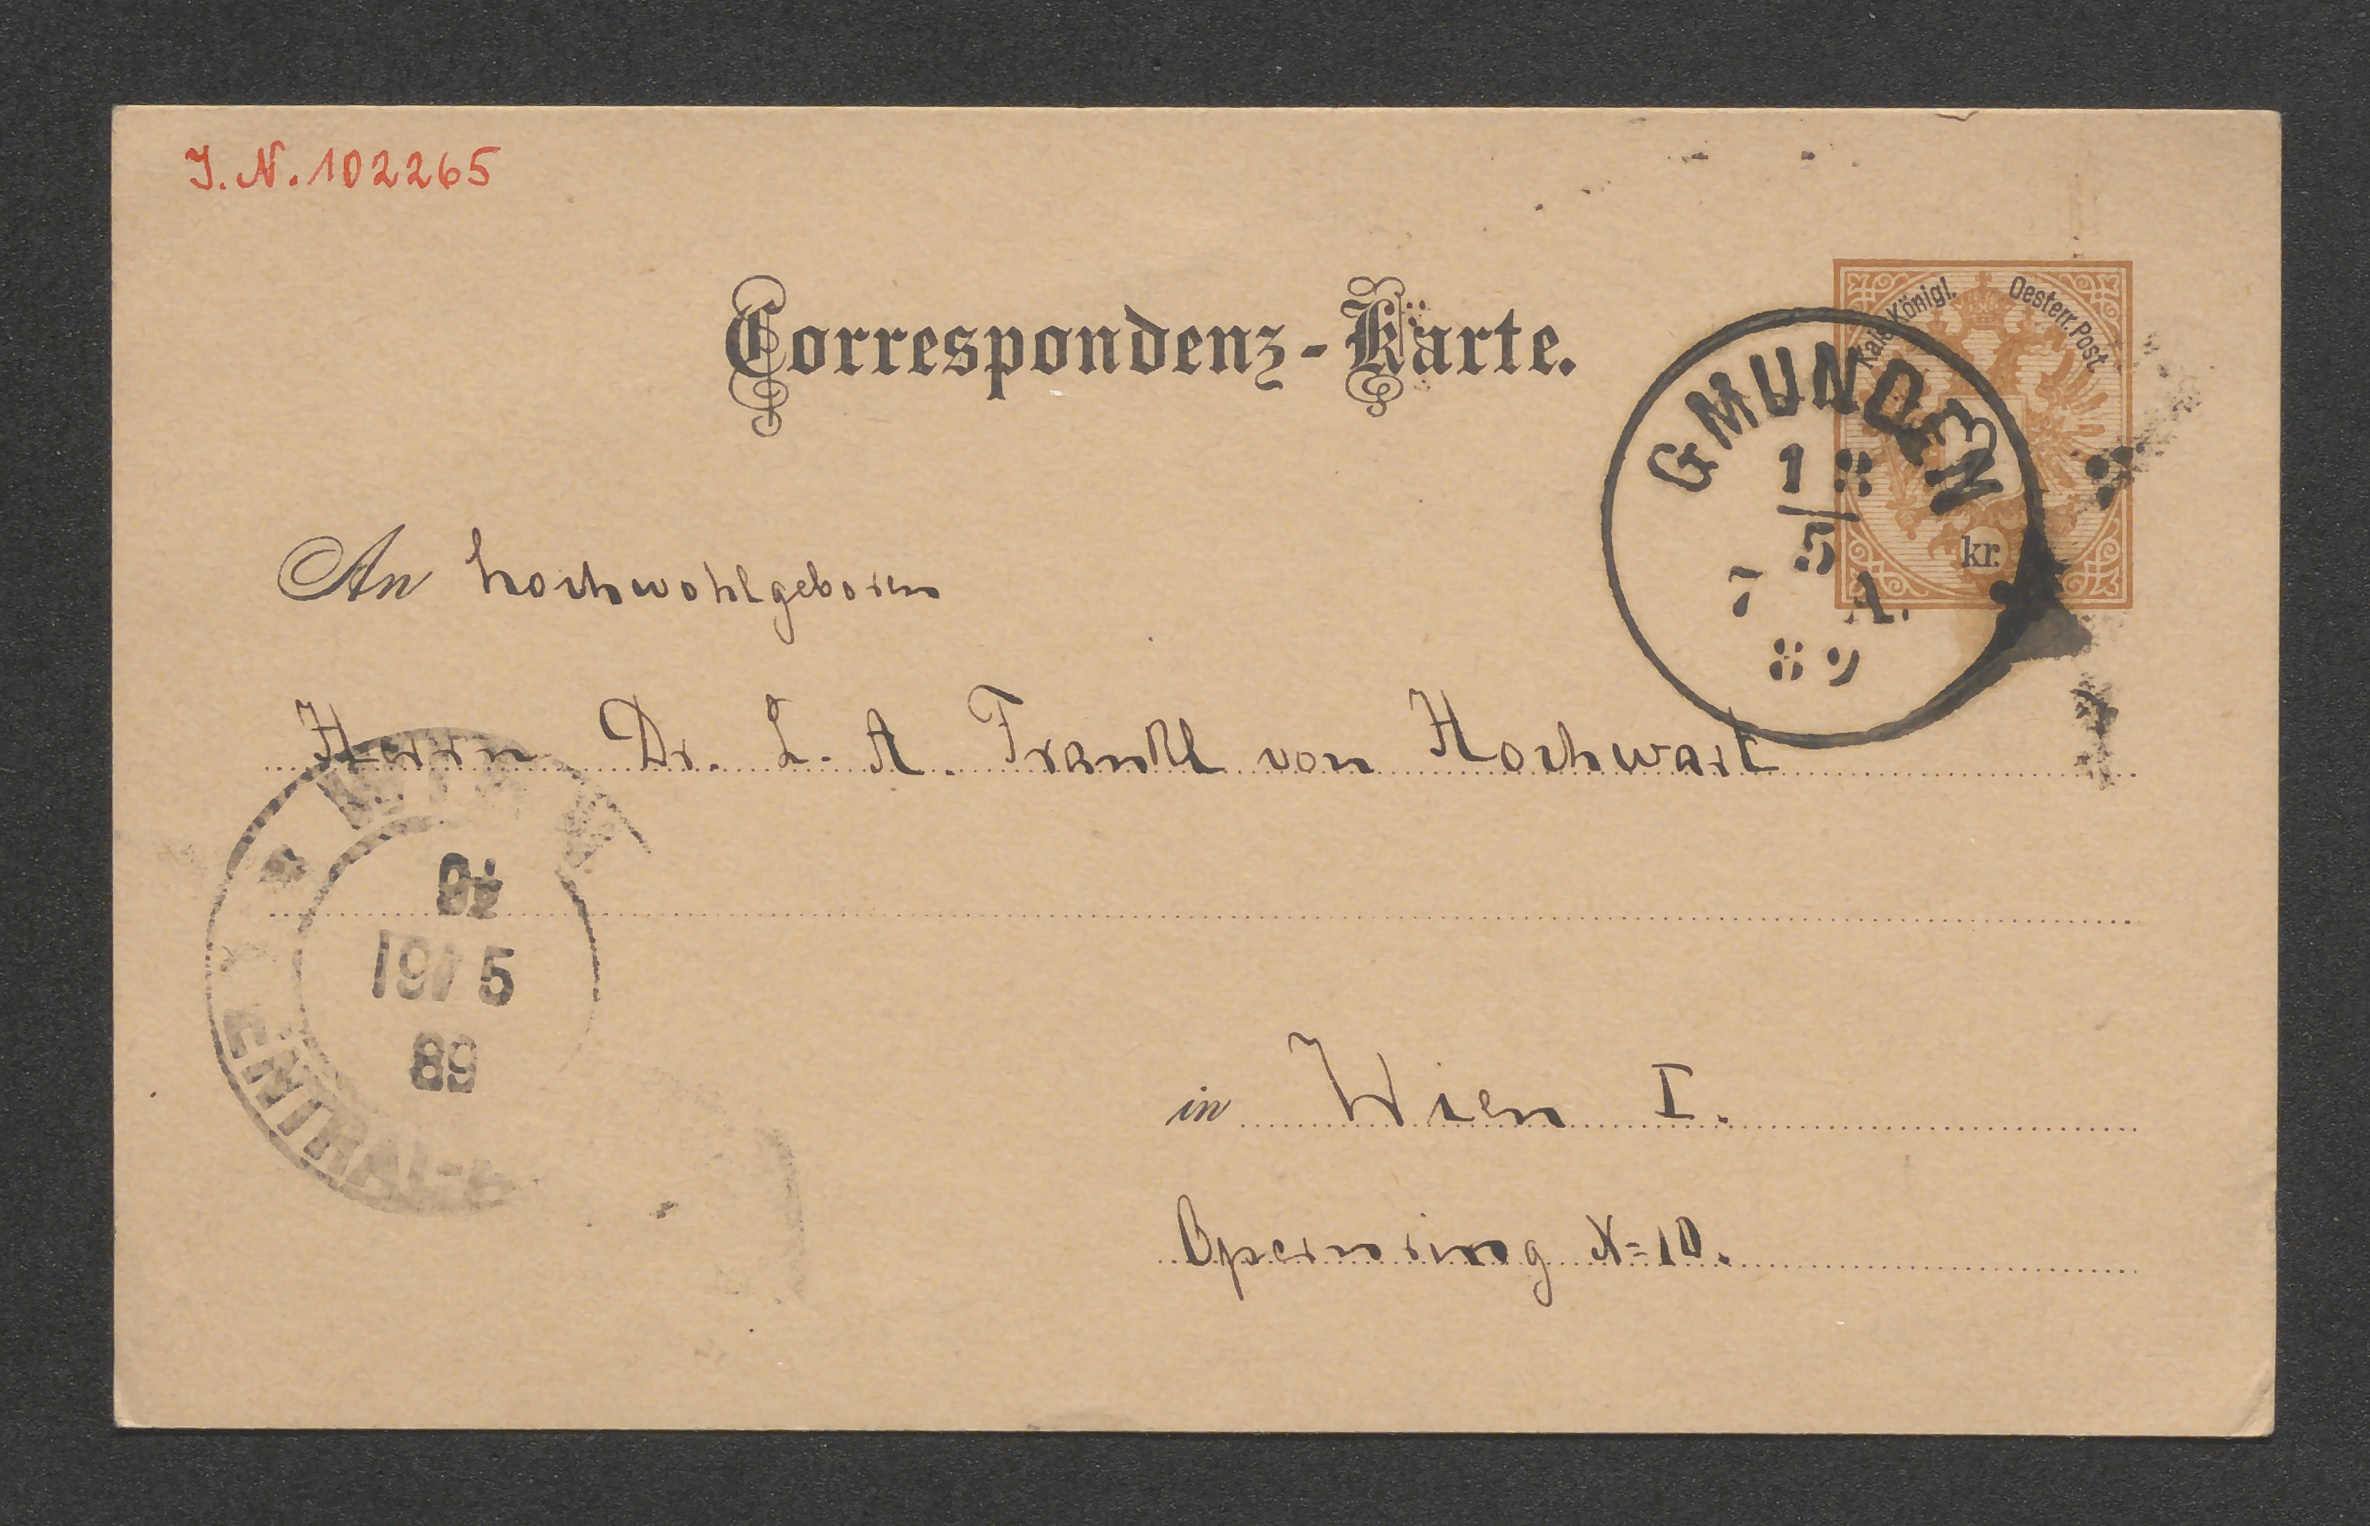 J.N. 102265
Correspondenz-Karte.
Kais. Königl. Oesterr. Post
kr.
GMUNDEN
18
5
7 A.
89
An Hochwohlgeboren
Herrn Dr. L. A. Frankl von Hochwart
WIEN
19/5
89
in Wien I.
Opernring N=10.